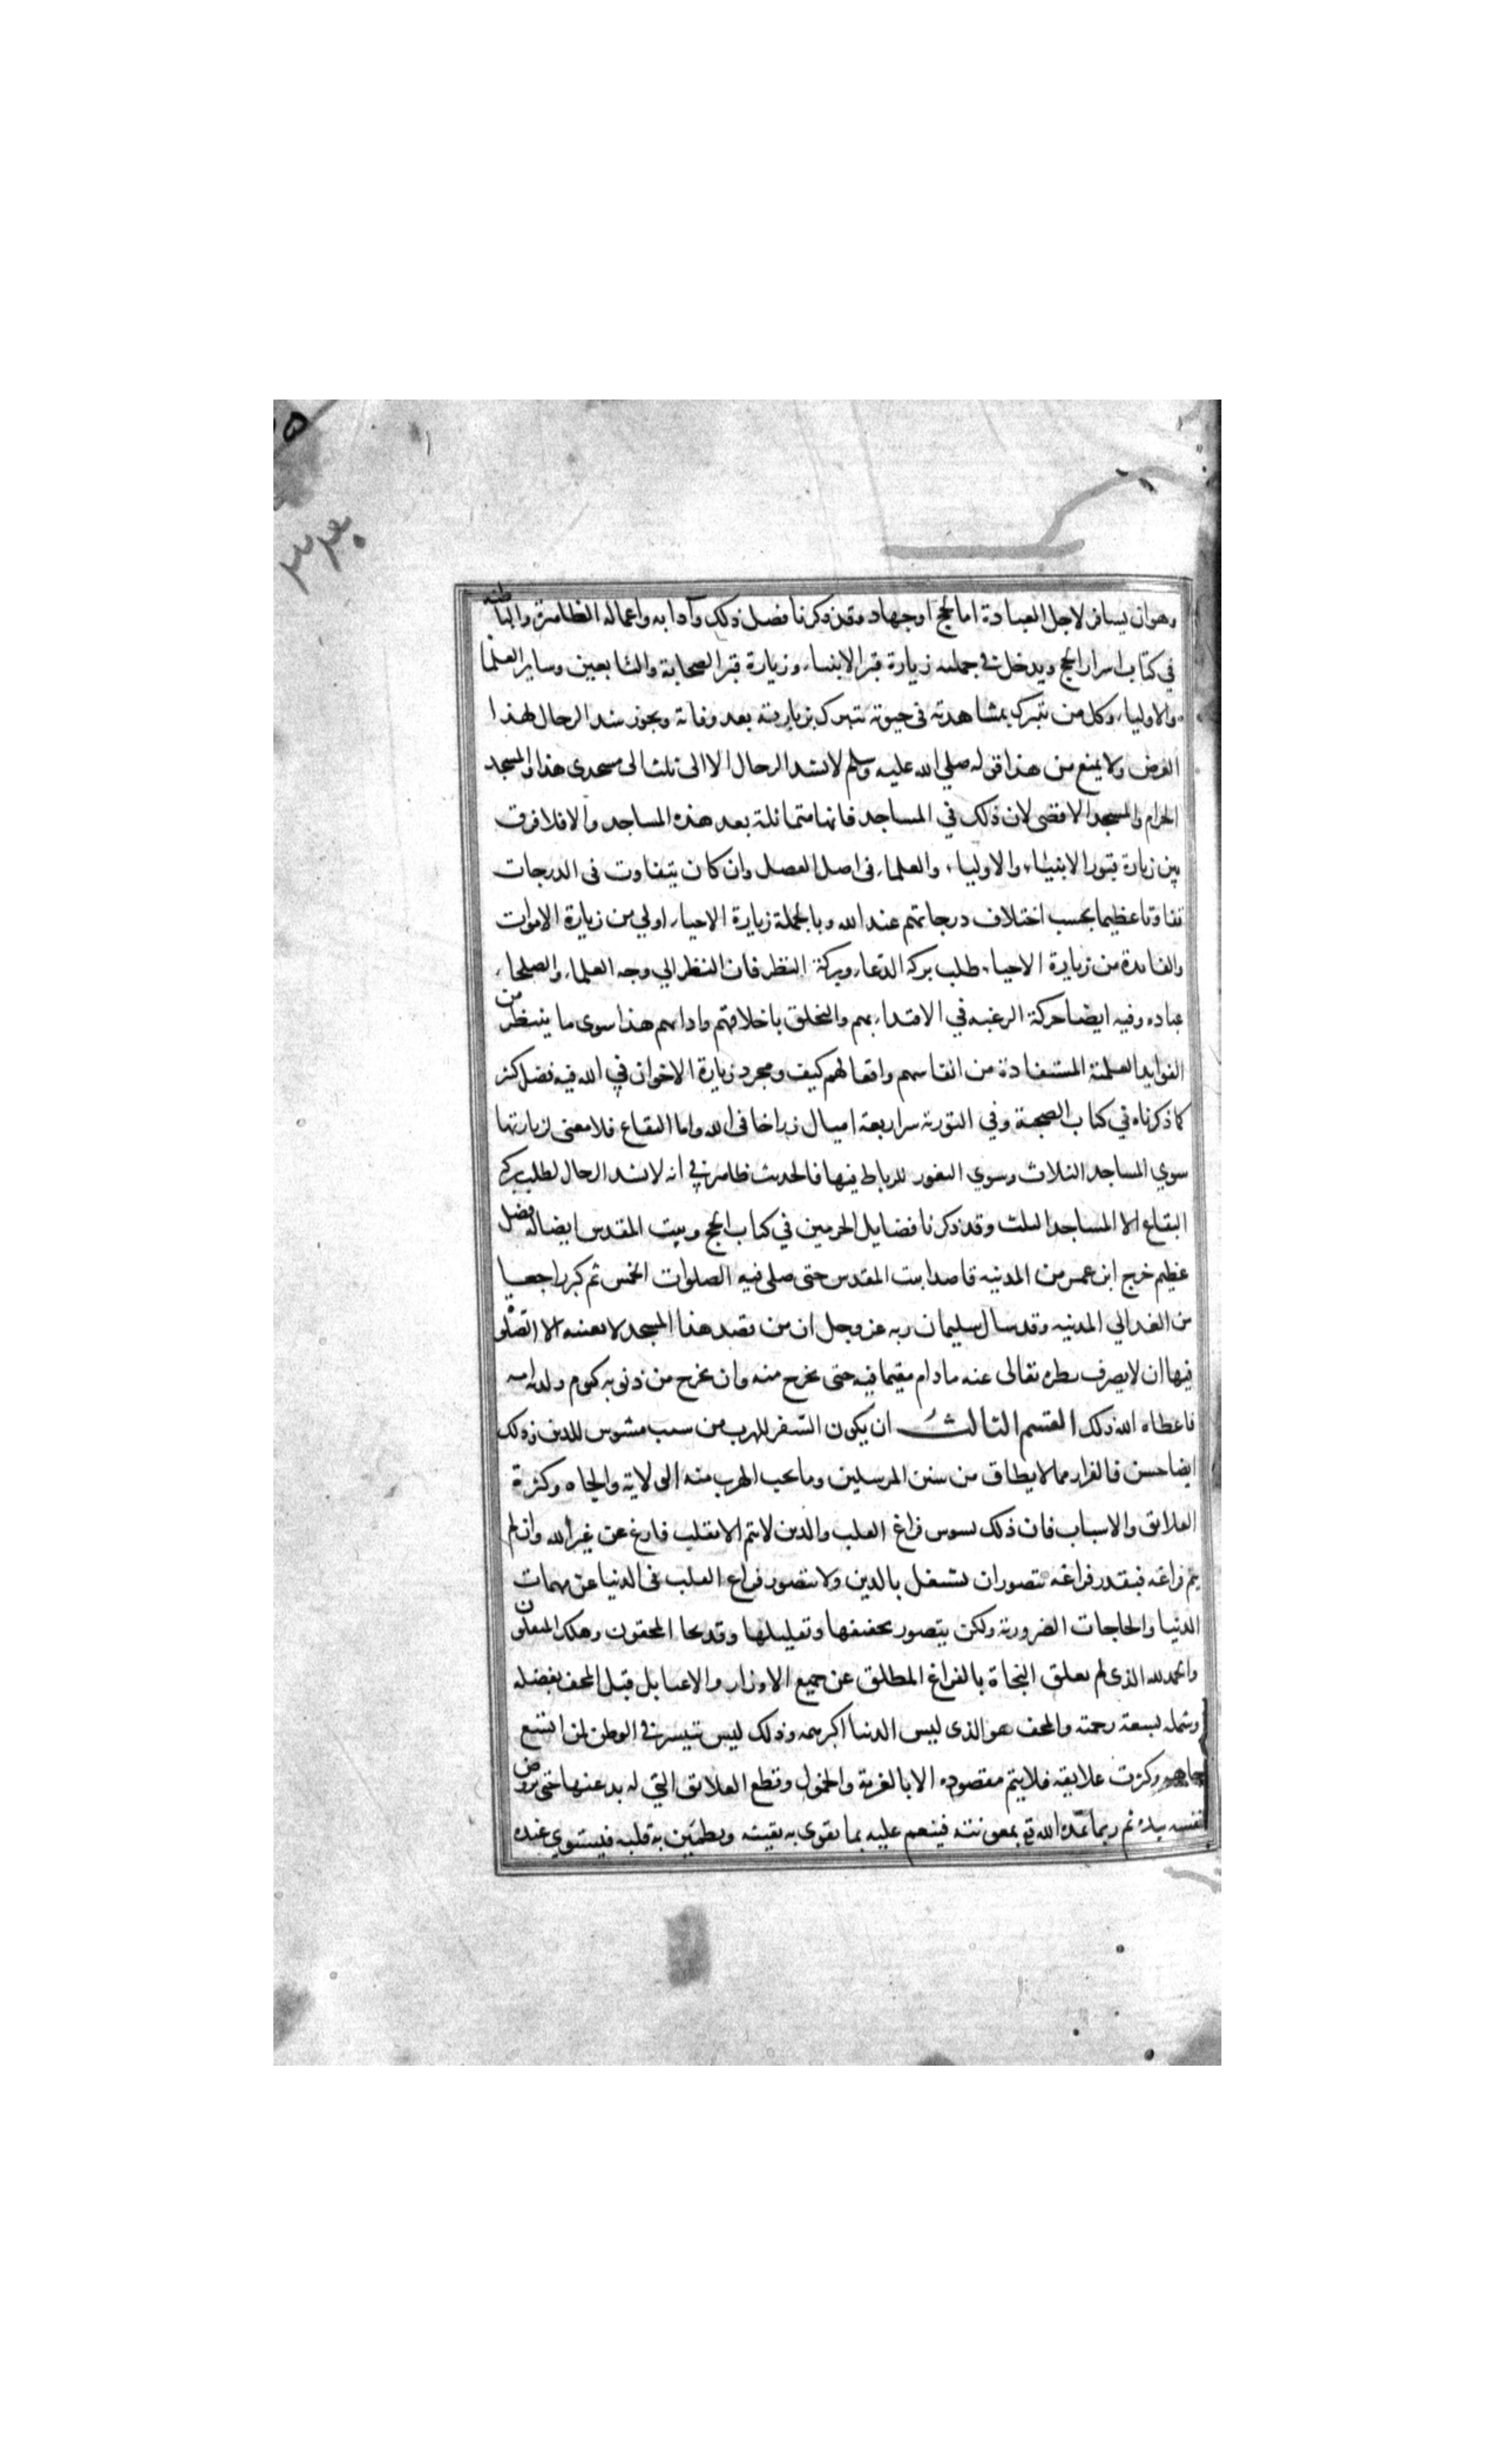 وهو ان يسافر لاجل العبادة اما لحج او جهاد وقد ذكرنا فضل ذلك وآدابه واعماله الظاهرة والباطنه
في كتاب اسرار الحج ويدخل في جملته زيارة قبر الانبياء وزيارة قبر الصحابة والتابعين وساير العلما
والاولياء وكل من تبرك بمشاهدته في حيوته تبرك بزيارته بعد وفاته ويجوز شد الرحال لهذا
الغرض ولا يمنع من هذا قوله صلي الله عليه وسلم لا تشد الرحال الا الى ثلث الى مسجدي هذا والمسجد
الحرام والمسجد الاقصى لان ذلك في المساجد فانها متماثلة بعد هذه المساجد والا فلا فرق
بين زيارة قبور الانبياء والاولياء والعلماء في اصل الفصل وان كان يتفاوت في الدرجات
تفاوتا عظيما بحسب اختلاف درجاتهم عند الله وبالجملة زيارة الاحياء اولي من زيارة الاموات
والفائدة من زيارة الاحياء طلب بركة الدعاء وبركة النظر فان النظر الي وجه العلماء والصلحاء
عباده وفيه ايضا حركة الرغبه في الاقتداء بهم والتخلق باخلاقهم وادابهم هذا سوى ما ينتظر من
الفوايد العلمية المستفادة من انفاسهم وافعالهم كيف ومجرد زيارة الاخوان في الله فيه فضل كثر
كما ذكرناه في كتاب الصحبة وفي التورية سر اربعة اميال زر اخا في الله واما البقاع فلا معنى لزيارتها
سوي المساجد الثلاث وسوي الثغور للرباط فيها فالحديث ظاهر في انه لا تشد الرحال لطلب بركة
البقاع الا المساجد الثلث وقد ذكرنا فضايل الحرمين في كتاب الحج وبيت المقدس ايضا له فضل
عظيم خرج ابن عمر من المدينه قاصدا بيت المقدس حتى صلى فيه الصلوات الخمس ثم كر راجعا
من الغد الي المدينه وقد سال سليمان ربه عز وجل ان من قصد هذا المسجد لا يعنيه الا الصلوة
فيها ان لا يصرف نظره تعالى عنه ما دام مقيما فيه حتى يخرج منه وان يخرج من ذنوبه كيوم ولدته امه
فاعطاه الله ذلك القسم الثالث ان يكون السفر للهرب من سبب مشوش للدين وذلك
ايضا حسن فالفرار مما لا يطاق من سنن المرسلين وما يجب الهرب منه الولاية والجاه وكثرة
العلائق والاسباب فان ذلك يشوش فراغ القلب والدين لا يتم الا بقلب فارغ عن غير الله وان لم
يتم فراغه فبقدر فراغه يتصور ان يشتغل بالدين ولا يتصور فراغ القلب في الدنيا عن مهمات
الدنيا والحاجات الضرورية ولكن يتصور تخفيفها وتقليلها وقد نجا المخفون وهلك المثقلون
والحمد لله الذي لم يعلق النجاة بالفراغ المطلق عن جميع الاوزار والاعبا بل قبل المخف بفضله
وشمله بسعة رحمته والمخف هو الذي ليس الدنيا اكبر همه وذلك ليس يتيسر في الوطن لمن اتسع
جاهه وكثرت علايقه فلا يتم مقصوده الا بالغربة والخمول وقطع العلائق التي له بد عنها حتى يروض
نفسه مدة ثم ربما يمده الله تع بمعونته فينعم عليه بما يقوى به يقينه ويطمئن به قلبه فيستوي عنده